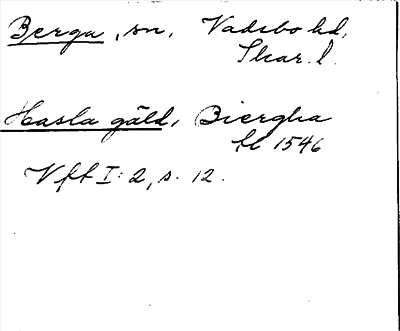 Berga, sn, Vadsbo hd,
Skar. l.
Hasla gäld, Biergha
hd 1546
Vff I:2, s. 12.